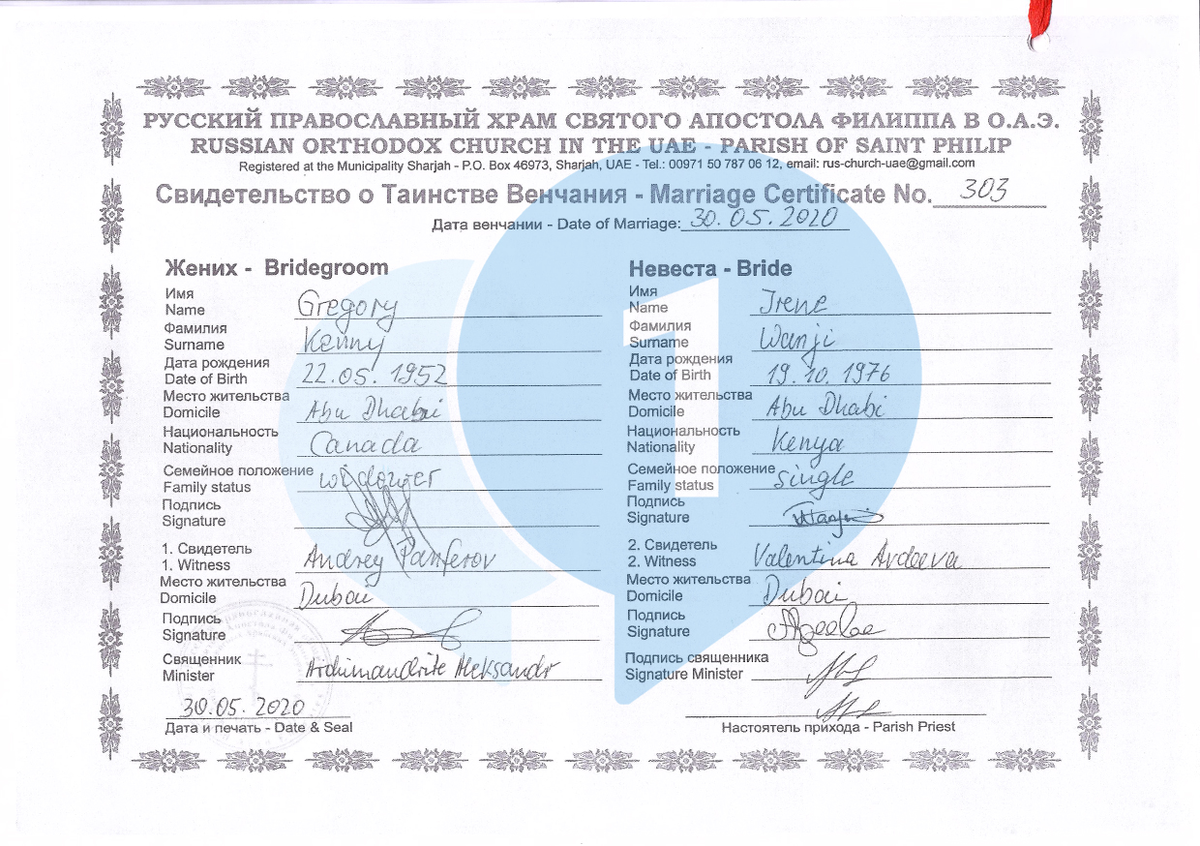 РУССКИЙ ПРАВОСЛАВНЫЙ ХРАМ СВЯТОГО АПОСТОЛА ФИЛИППА В О.А.Э.
RUSSIAN ORTHODOX CHURCH IN THE UAE - PARISH OF SAINT PHILIP
Registered at the Municipality Sharjah - P.O. Box 46973, Sharjah, UAE - Tel.: 00971 50 787 06 12, email: rus-church-uae@gmail.com
Свидетельство о Таинстве Венчания - Marriage Certificate No. 303
Дата венчании - Date of Marriage: 30.05.2020
Жених - Bridegroom
Имя
Name Gregory
Фамилия
Surname Kenny
Дата рождения
Date of Birth 22.05.1952
Место жительства
Domicile Abu Dhabi
Национальность
Nationality Canada
Семейное положение
Family status widower
Подпись
Signature
1. Свидетель
1. Witness Andrey Panferov
Место жительства
Domicile Dubai
Подпись
Signature
Священник
Minister Archimandrite Aleksandr
30.05.2020
Дата и печать - Date & Seal
Невеста - Bride
Имя
Name Irene
Фамилия
Surname Wanji
Дата рождения
Date of Birth 19.10.1976
Место жительства
Domicile Abu Dhabi
Национальность
Nationality Kenya
Семейное положение
Family status single
Подпись
Signature
2. Свидетель
2. Witness Valentina Avdeeva
Место жительства
Domicile Dubai
Подпись
Signature
Подпись священника
Signature Minister
Настоятель прихода - Parish Priest
1